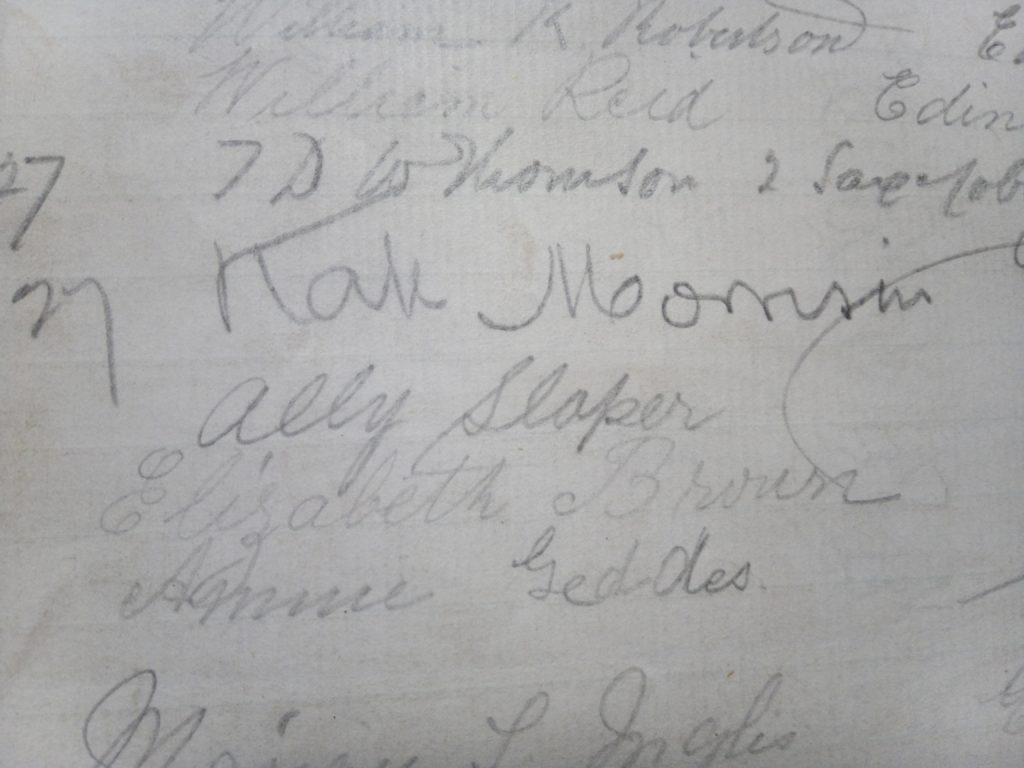 William K Robertson E
William Reid Edin
27 7 D W Thomson 2 Saxe Cob
27 Kate Morrison
Ally Sloper
Elizabeth Brown
Annie Geddes
L Inglis